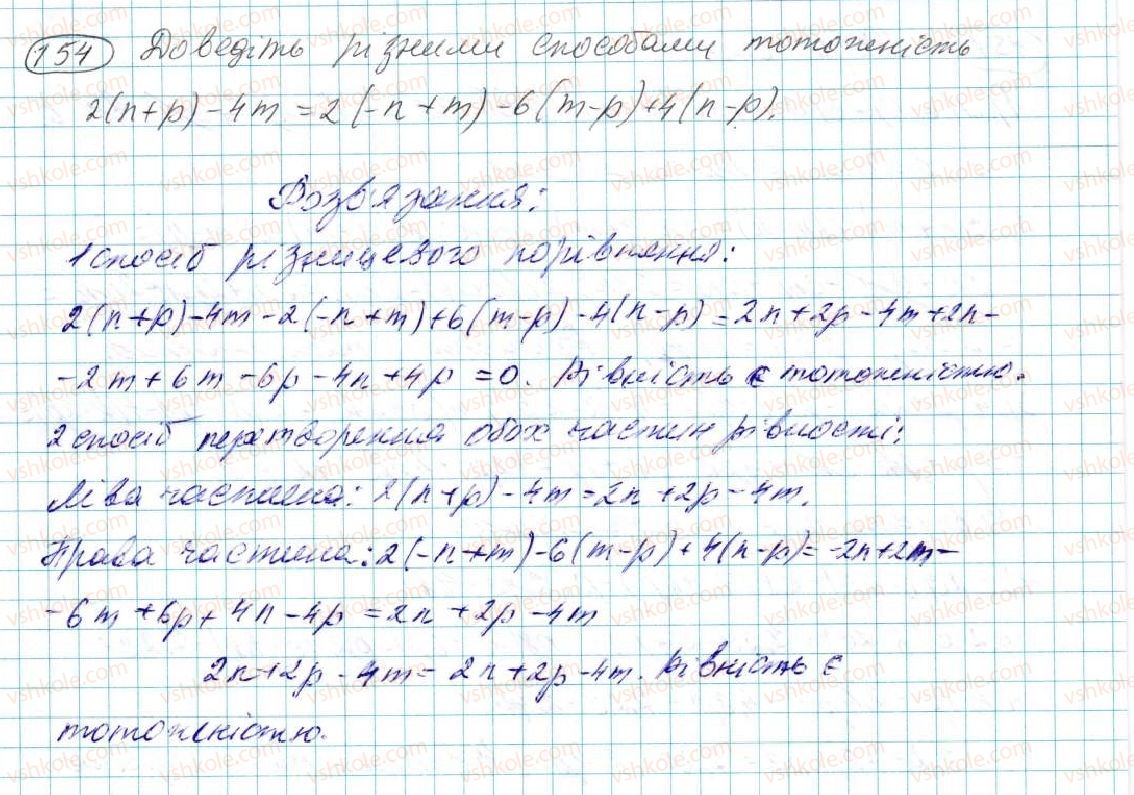 154 Доведіть різними способами тотожність
2(n+p)-4m=2(-n+m)-6(m-p)+4(n-p).
Розв'язання:
1 спосіб різницевого порівняння:
2(n+p)-4m-2(-n+m)+6(m-p)-4(n-p)=2n+2p-4m+2n-
-2m+6m-6p-4n+4p=0. Рівність є тотожністю.
2 спосіб перетворення обох частин рівності:
Ліва частина: 2(n+p)-4m=2n+2p-4m.
Права частина: 2(-n+m)-6(m-p)+4(n-p)=-2n+2m-
-6m+6p+4n-4p=2n+2p-4m
2n+2p-4m=2n+2p-4m. Рівність є
тотожністю.